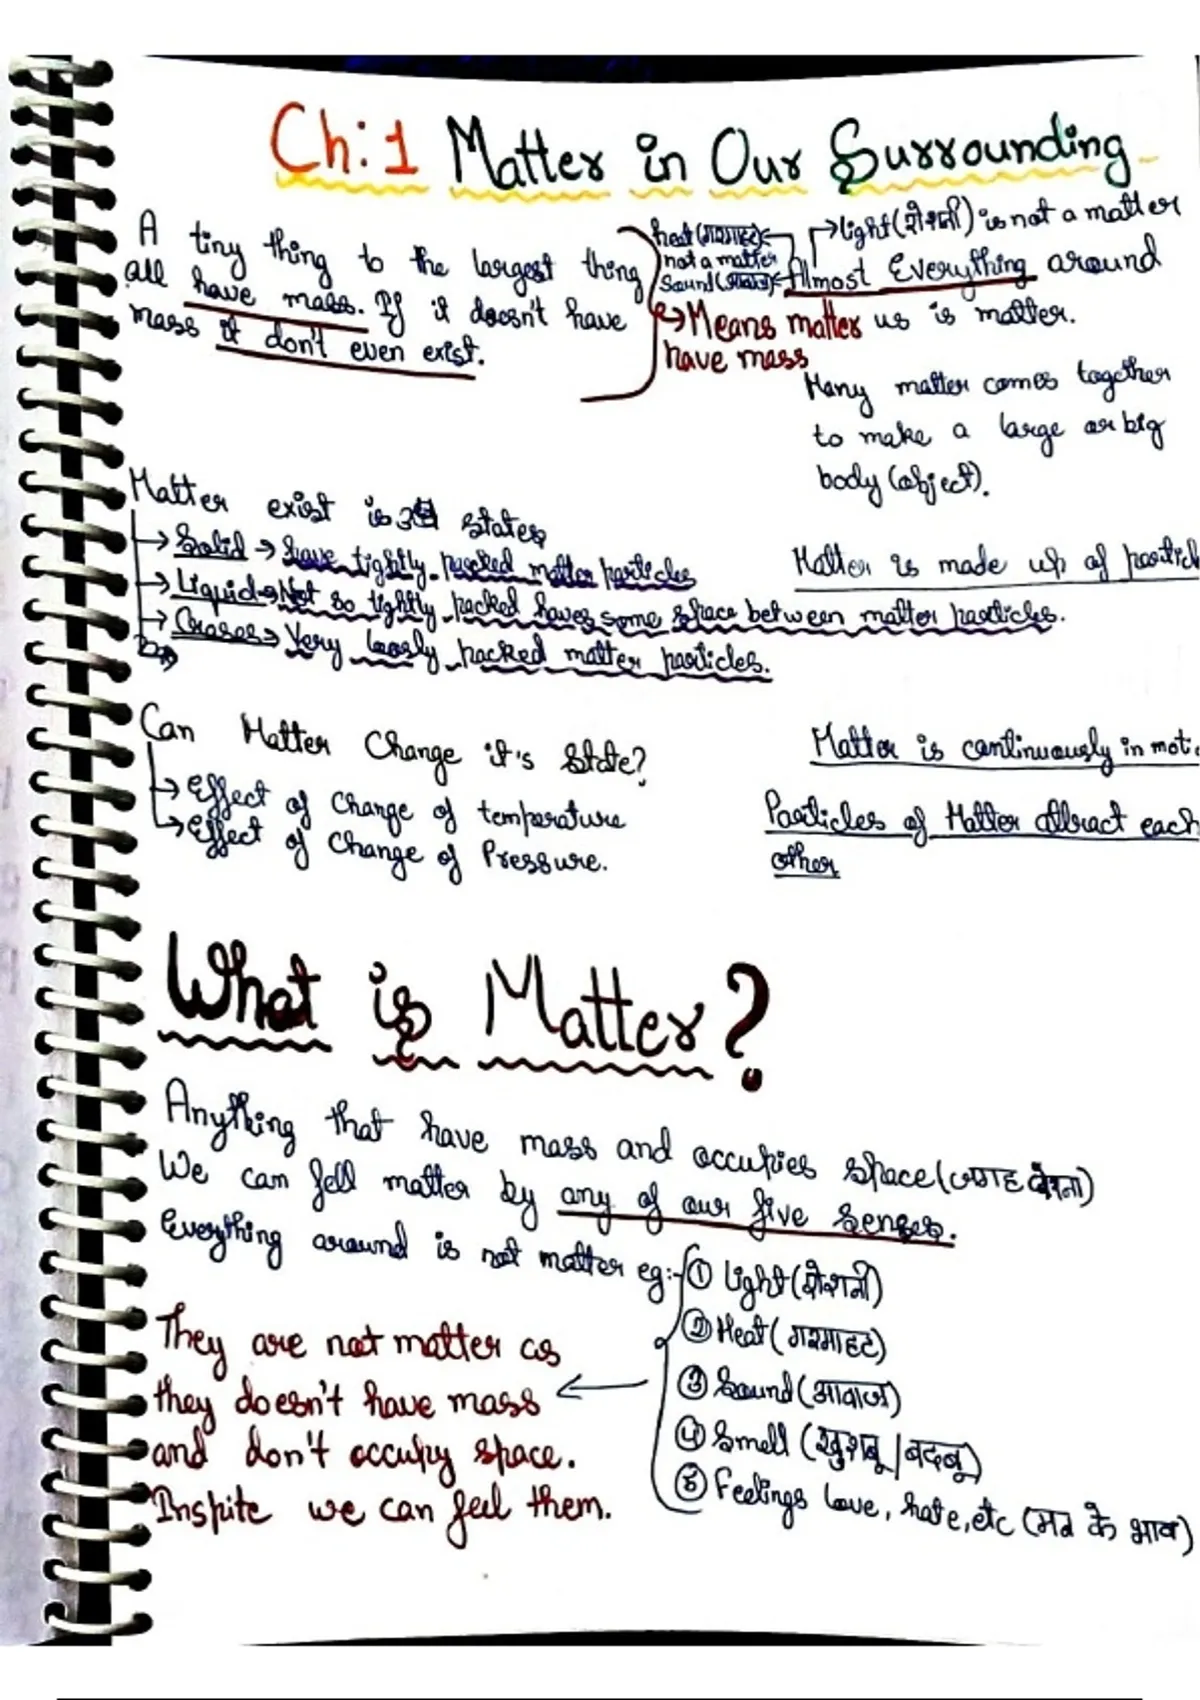 Ch:1 Matter in Our Surrounding
A tiny thing to the largest thing
all have mass. If it doesn't have
mass it don't even exist.
heat (गरमाहट)
not a matter
Sound (आवाज)
light (रोशनी) is not a matter
Almost Everything around
us is matter.
Means matter
have mass
Many matter comes together
to make a large or big
body (object).
Matter exist is 3 states
Solid → have tightly packed matter particles
Liquid → Not so tightly packed haves some space between matter particles.
Gases → Very loosly packed matter particles.
Matter is made up of particl
Can Matter Change it's State?
→ Effect of Change of temperature
→ Effect of Change of Pressure.
Matter is continuously in moti
Particles of Matter attract each
other
What is Matter?
Anything that have mass and occupies space (जगह घेरना)
We can fell matter by any of our five senses.
Everything around is not matter eg:-
① Light (रोशनी)
② Heat (गरमाहट)
③ Sound (आवाज)
④ Smell (खुशबू/बदबू)
⑤ Feelings love, hate, etc (मन के भाव)
They are not matter as
they doesn't have mass
and don't occupy space.
Inspite we can feel them.